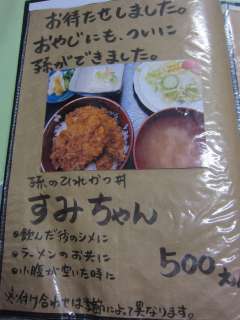 お待たせしました。
おやじにも、ついに
孫ができました。
孫のひれかつ丼
すみちゃん
●飲んだ後のシメに
●ラーメンのお共に
●小腹が空いた時に
500
※付け合わせは季節によって異なります。